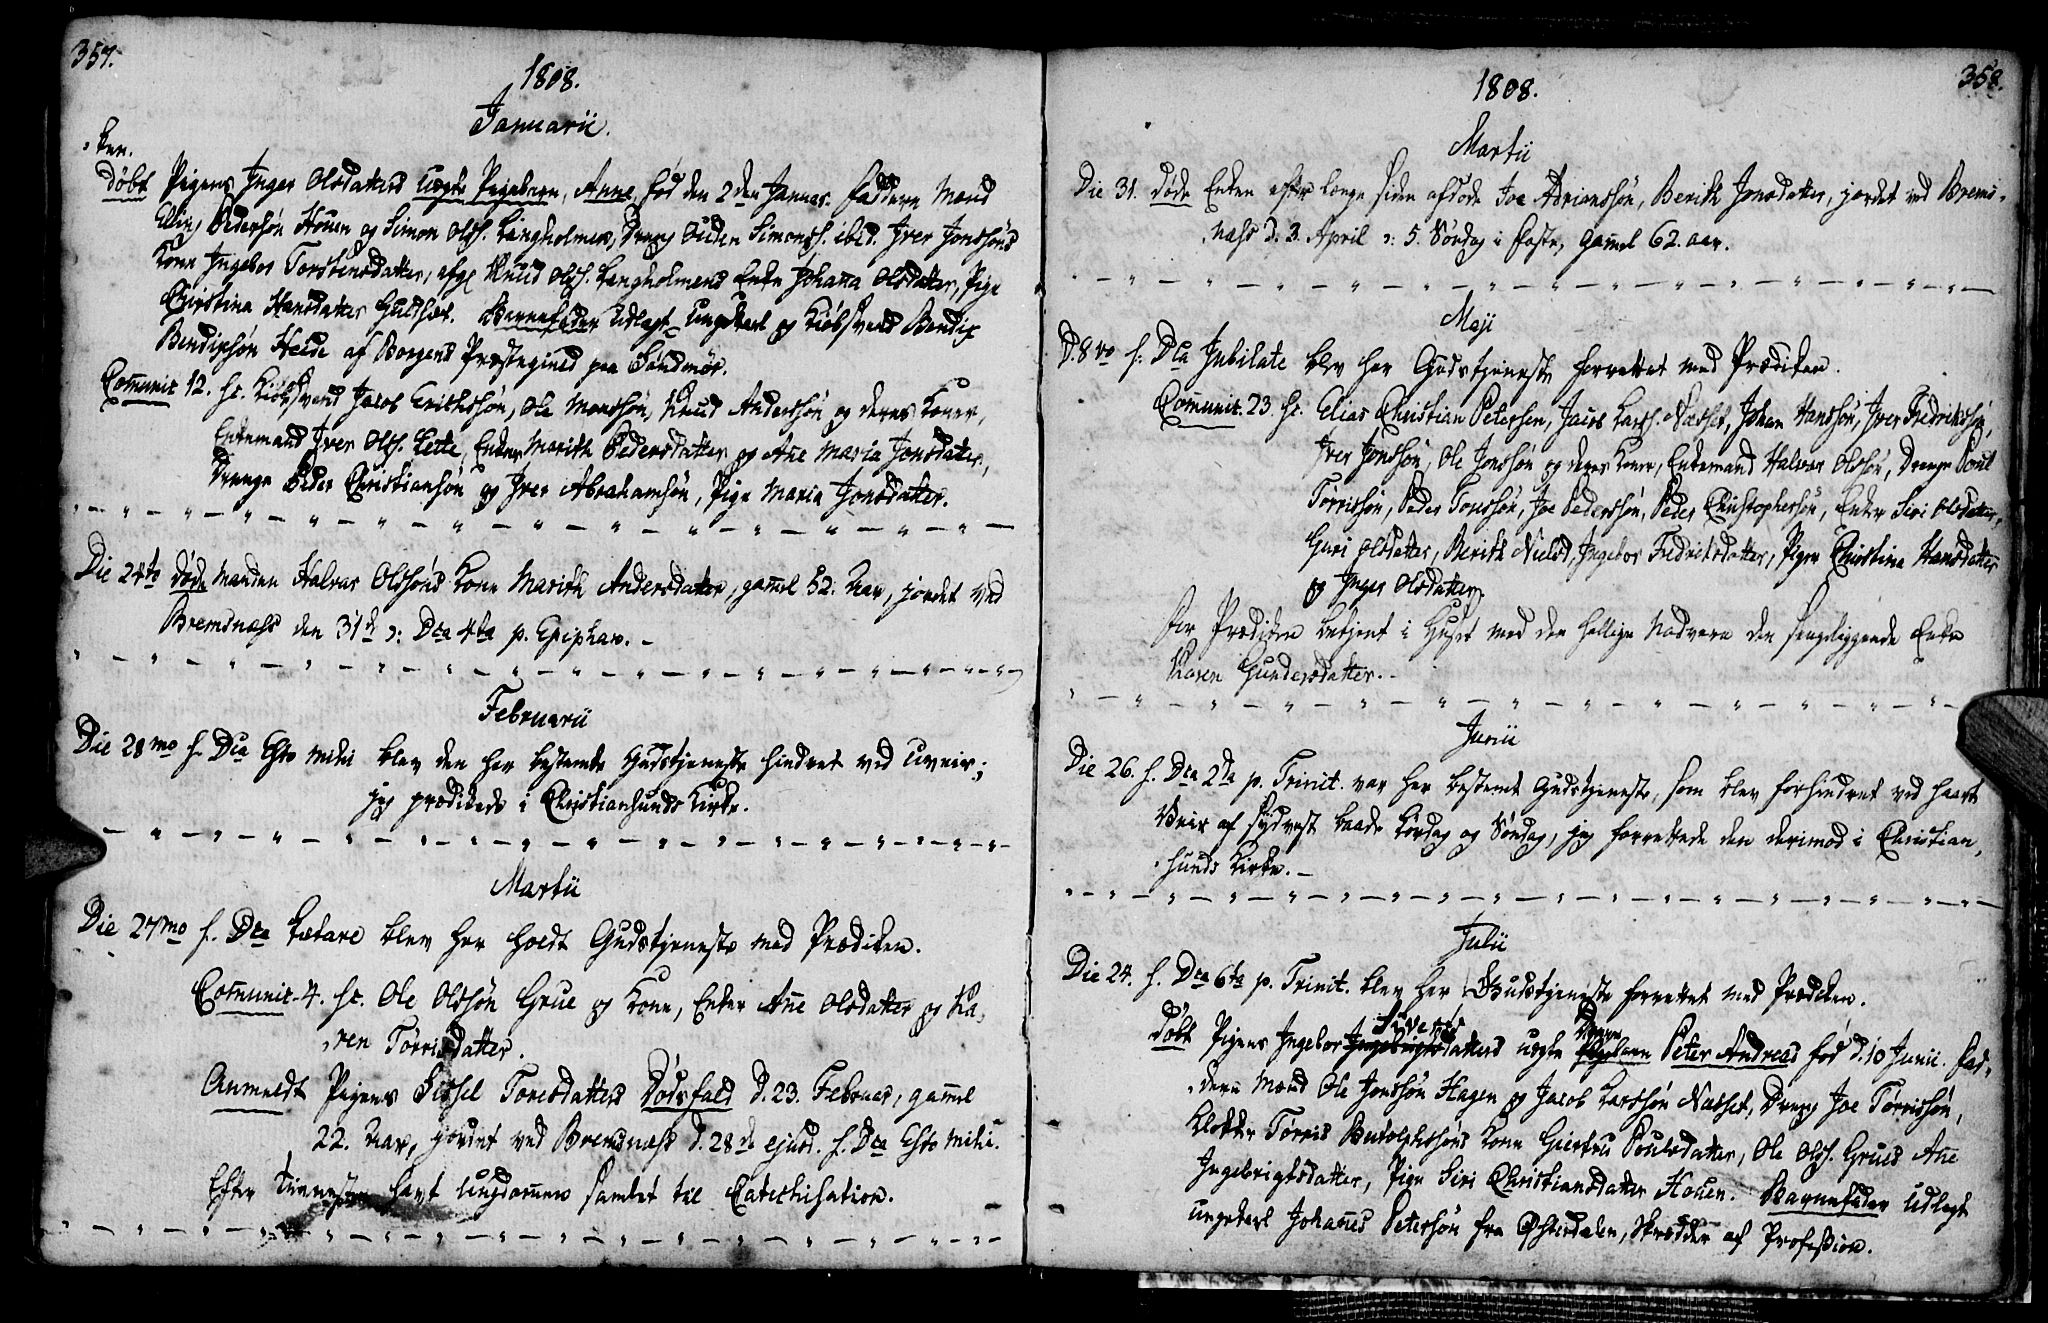 357.
1808.
Januarii.
„ken.
døbt Pigens Inger Olsdatters uægte Pigebarn, Anne, fød den 2den Januar. Faddere Mænd
Elling Pedersøn Houen og Simon Olss. Langholmen, Dreng Ouden Simonss. ibid. Iver Jonssøns
Kone Ingebor Torstensdatter, afg. Knud Olss. Langholmens Enke Johana Olsdatter, Pige
Christina Hansdatter Guldset. Barnefader udlagt Ungkarl og Kiøbsvend Bendix
Bendixsøn Heide af Borgens Præstegield paa Søndmør.
Comunic. 12. Sc. Kiøbsvend Jacob Erichssøn, Ole Monssøn, Knud Anderssøn og deres Koner,
Enkemand Iver Olss. Lette, Enker Marith Pedersdatter og Ane Maria Jonsdatter,
Drenge Peder Christiansøn og Iver Abrahamsøn, Pige Maria Jonsdatter.
Die 24to døde Manden Halvor Olssøns Kone Marith Andersdatter, gamel 52. Aar, jordet ved
Bremsnæss den 31te ɔ: Dca 4ta p. Epiphan.
Februarii
Die 28mo s. Dca Esto mihi blev den her bestemte Gudstjeneste hindret ved Uveir;
jeg prædikede i Christiansunds Kirke.
Martii
Die 27mo s. Dca Lætare blev her holdt Gudstjeneste med Prædiken.
Comunic. 4. Sc. Ole Olssøn Grue og Kone, Enker Ane Olsdatter og Ka„
„ren Tørrisdatter.
Anmeldt Pigens Sissel Toresdatters Dødsfald d. 23. Februar, gamel
22. Aar, jordet ved Bremsnæss d. 28de ejusd. s. Dca Esto mihi.
Efter Tjenesten havt Ungdomen samlet til Catechisation.
358.
1808.
Martii
Die 31. døde Enken efter længe siden afdøde Joe Adrianssøn, Berith Jonsdatter, jordet ved Brems„
„næss d. 3. April ɔ: 5. Søndag i Faste, gamel 62. aar.
Maji
D. 8vo s. Dca Jubilate blev her Gudstjeneste forrettet med Prædiken.
Comunic. 23. Sc. Elias Christian Petersen, Jacob Larss. Nasset, Johan Hanssøn, Iver Fredrikssøn,
Iver Jonssøn, Ole Jonssøn og deres Koner, Enkemand Halvor Olssøn, Drenge Poul
Tørrissøn, Peder Toressøn, Joe Pederssøn, Peder Christophersøn, Enker Siri Olsdatter,
Guri Olsdatter, Berith Nielsd., Ingebor Fredriksdatter, Piger Christina Hansdatter
og Inger Olsdatter.
Før Prædiken betjent i Huset med den hellige Nadvere den sengeliggende Enke
Karen Gundersdatter.
Junii
Die 26. s. Dca 2da p. Trinit. var her bestemt Gudstjeneste, som blev forhindret ved haard
Veir af Sydvest baade Lørdag og Søndag, jeg forrettede den derimod i Christian„
„sunds Kirke.
Julii
Die 24. s. Dca 6ta p. Trinit. blev her Gudstjeneste forrettet med Prædiken.
Siverts Drenge
døbt Pigens Ingebor Ingebrigtsdatters uægte Pigebarn Peter Andreas fød d. 10 Junii. Fad„
„dere Mænd Ole Jonssøn Hagen og Jacob Larssøn Nasset, Dreng Joe Tørrissøn,
Klokker Tørris Budolphssøns Kone Giertru Poulsdatter, Ole Olss. Grues Ane
Ingebrigtsdatter, Pige Siri Christiansdatter Houen. Barnefader udlagt
Ungkarl Johanes Petersøn fra Østerdalen, Skrædder af Profession.